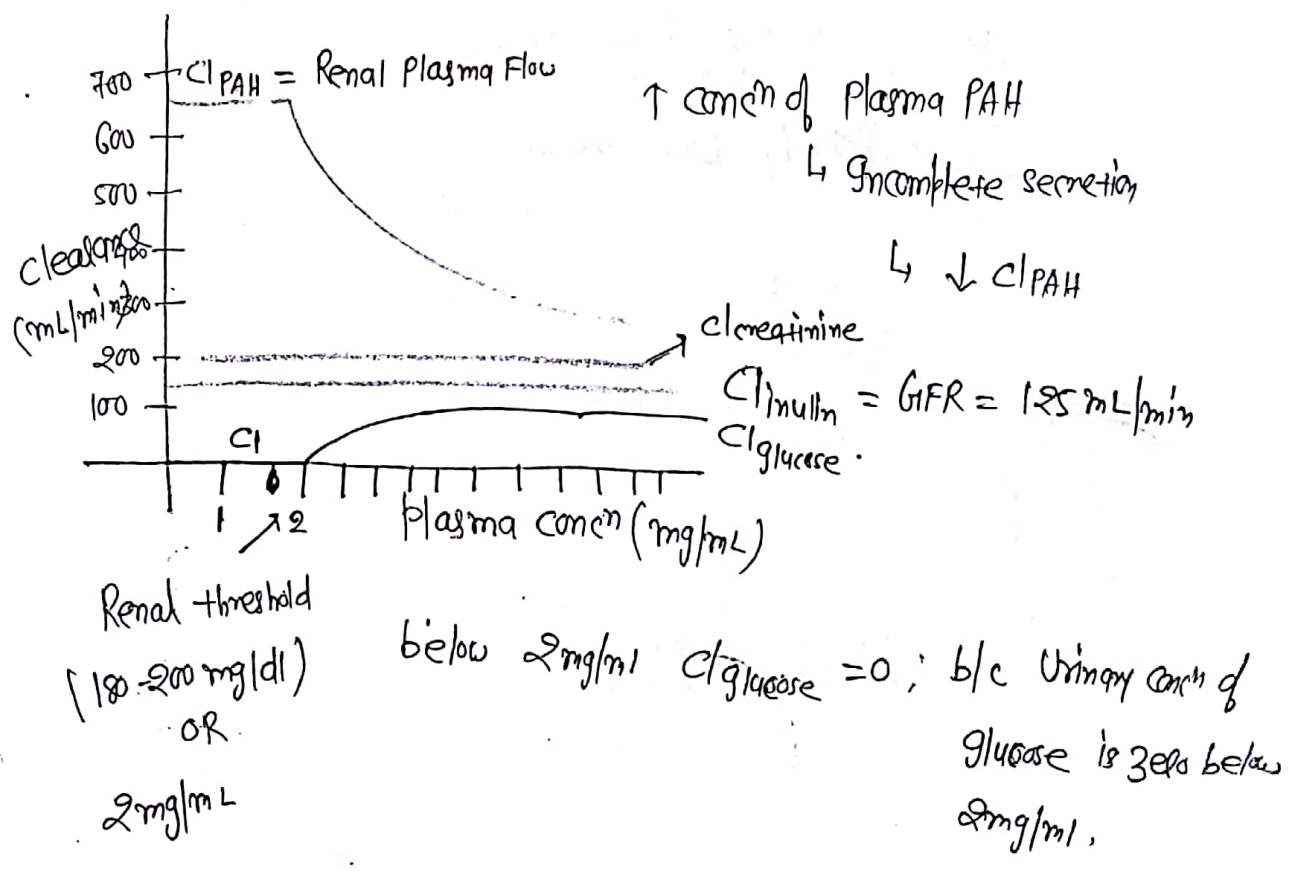 700 Cl PAH = Renal Plasma Flow
600
500
400
clearance
(mL/min) 300
200
100
↑ concn of Plasma PAH
↳ Incomplete secretion
↳ ↓ Cl PAH
Cl creatinine
Cl Inulin = GFR = 125 mL/min
Cl glucose.
Cl
1 2 Plasma concn (mg/mL)
Renal threshold
(180-200 mg/dl)
OR
2 mg/mL
below 2mg/ml Cl glucose = 0; b/c Urinary concn of
glucose is zero below
2mg/ml.